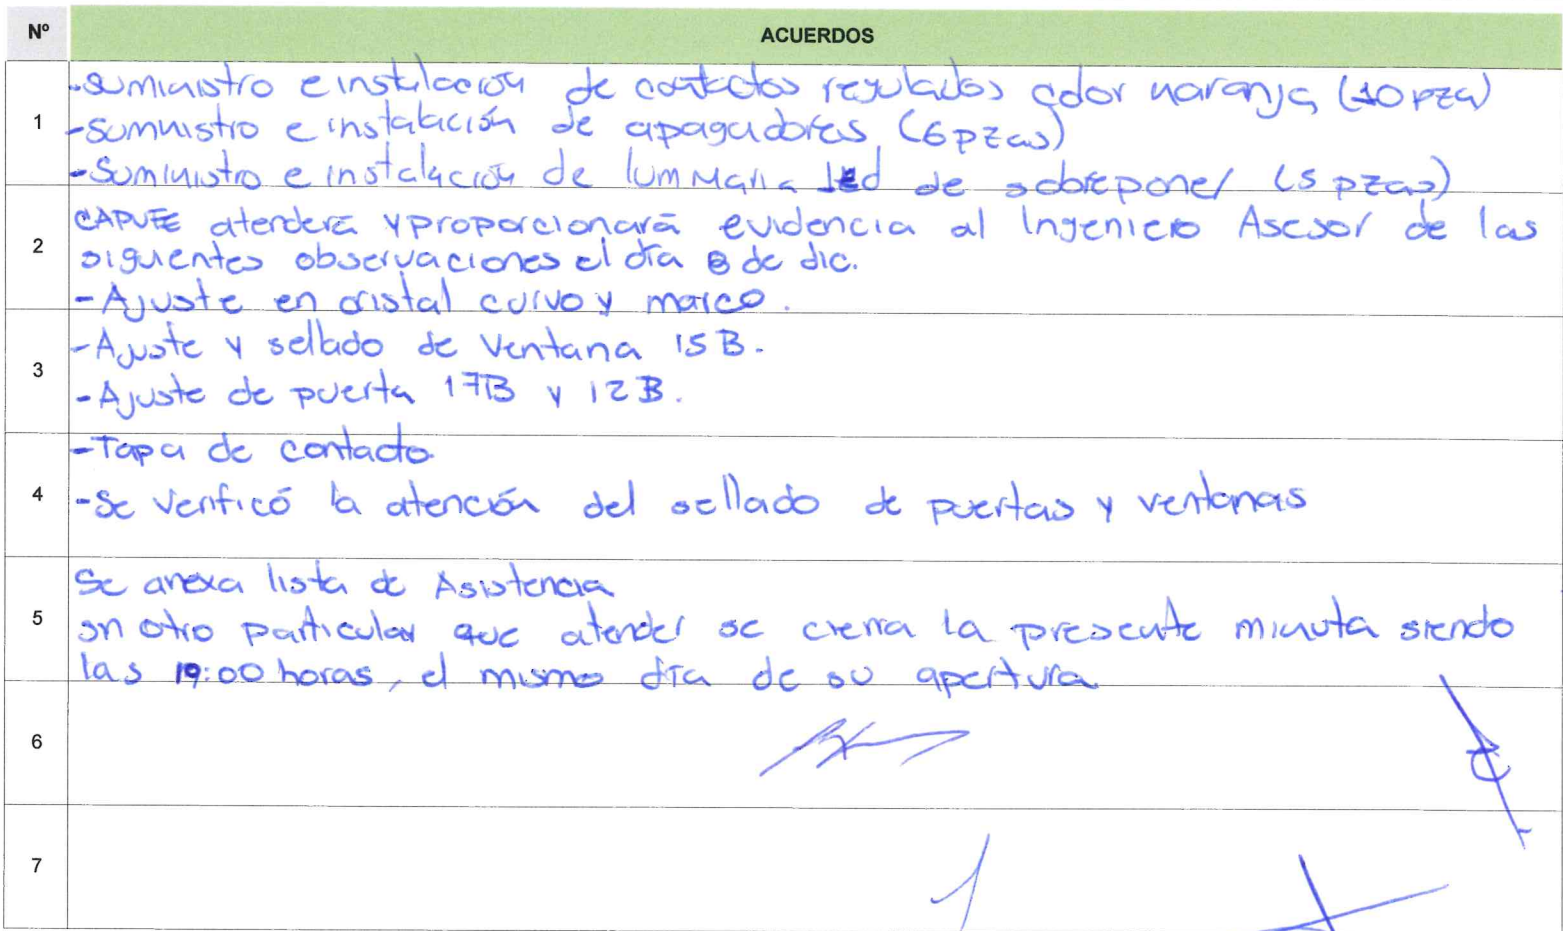 Nº ACUERDOS
1
-Suministro e instalación de contactos regulados color naranja (10 pza)
-Suministro e instalación de apagadores (6 pzas)
-Suministro e instalación de luminaria led de sobreponer (5 pzas)
2
CAPUFE atenderá y proporcionará evidencia al Ingeniero Asesor de las
siguientes observaciones el día 8 de dic.
-Ajuste en cristal curvo y marco.
3
-Ajuste y sellado de Ventana 15B.
-Ajuste de puerta 17B y 12B.
4
-Tapa de contacto
-Se verificó la atención del sellado de puertas y ventanas
5
Se anexa lista de Asistencia
sin otro particular que atender se cierra la presente minuta siendo
las 19:00 horas, el mismo día de su apertura
6
7